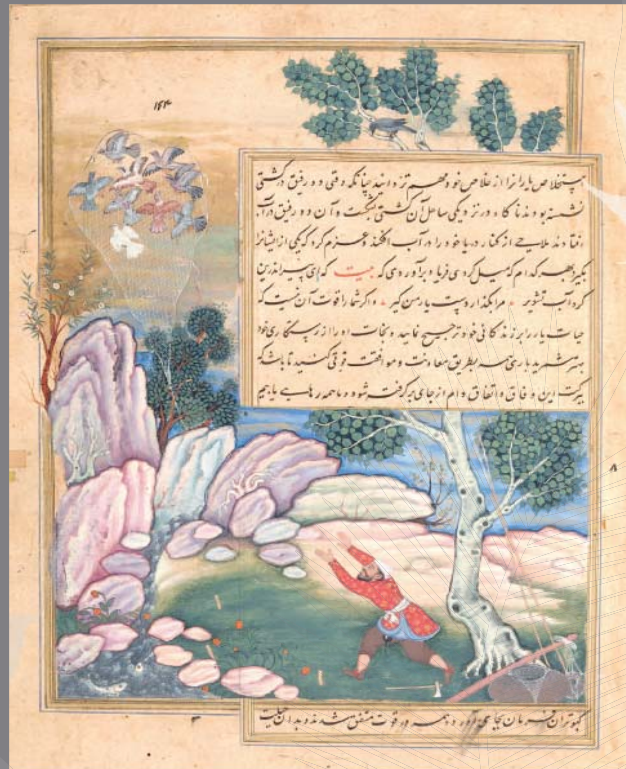 ۱۶۴
استخلاص یاران را از خلاص خود مهم تر دانید چنانکه وقتی دو رفیق در کشتی
نشسته بودند ناگاه در نزدیکی ساحل آن کشتی بشکست و آن دو رفیق در آب
افتادند ملاحی از کنار دریا خود را در آب افکند و عزم کرد که یکی از ایشانرا
بگیرد بهر کدام که میل کردی فریاد برآوردی که بیت که ای پیر اندرین
گرداب تشویر مرا بگذار و دست یار من گیر و اگر شما را قوت آن نیست که
حیات یار را بر زندگانی خود ترجیح نمایید و نجات او را از رستگاری خود
بهتر شمرید باری همه بطریق معاونت و موافقت قوتی کنید تا باشد که
ببرکت این وفاق و اتفاق دام از جای برگرفته شود و ما همه رهایی یابیم
۸
۳
کبوتران فرمان بجای آورده همه در قوت متفق شدند و بدان حیلت